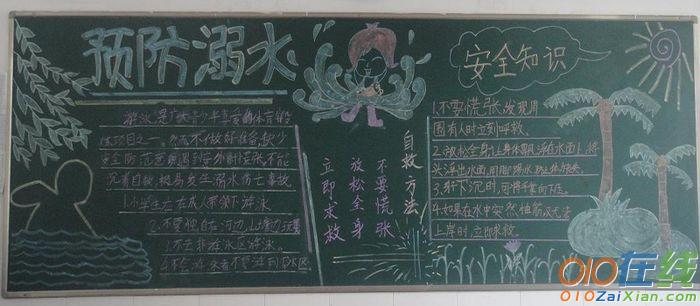 预防溺水
游泳是广大青少年喜爱的体育锻
炼项目之一。然而不做好准备、缺少
安全防范意识,遇到意外时慌张、不能
沉着自救,极易发生溺水伤亡事故。
1.小学生应在成人带领下游泳。
2.不要独自在河边、山塘边玩耍
3.不去非游泳区游泳。
4.不会游泳者不要游到深水区
自救方法
不要慌张
放松全身
立即求救
安全知识
1.不要慌张,发现周
围有人时立刻呼救。
2.放松全身,让身体飘浮在水面上,将
头浮出水面,用脚踢水
3.身体下沉时,可将手掌向下压。
4.如果在水中突然抽筋,又无法
上岸时,立即求救。
010在线
010ZaiXian.com